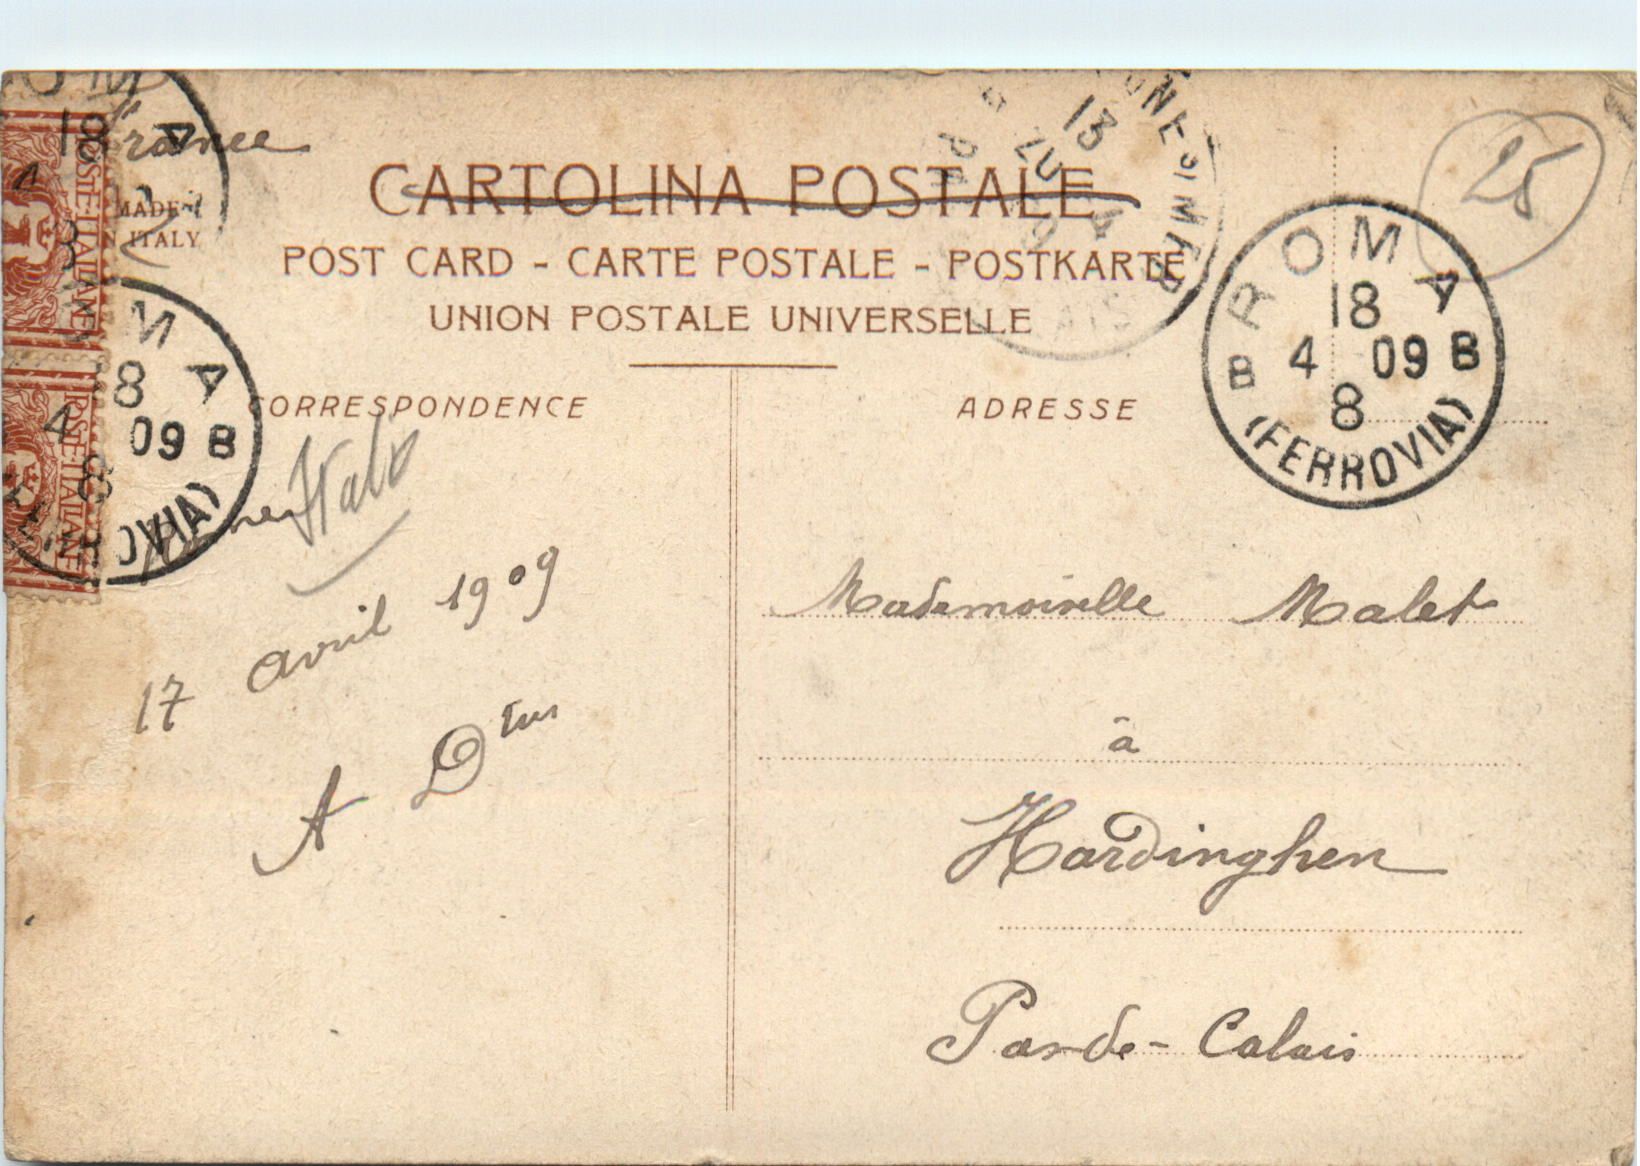 France
MADE
N ITALY
CARTOLINA POSTALE
POST CARD - CARTE POSTALE - POSTKARTE
UNION POSTALE UNIVERSELLE
CORRESPONDENCE
ADRESSE
25
POSTE-ITALIANE
POSTE-ITALIANE
OMA
18
4
MA
8
4 09 B
8
OVIA)
ROMA
18
B 4 09 B
8
(FERROVIA)
13
20 4
09
17 avril 1909
A D
Mademoiselle Malet
à
Hardinghen
Pas-de-Calais